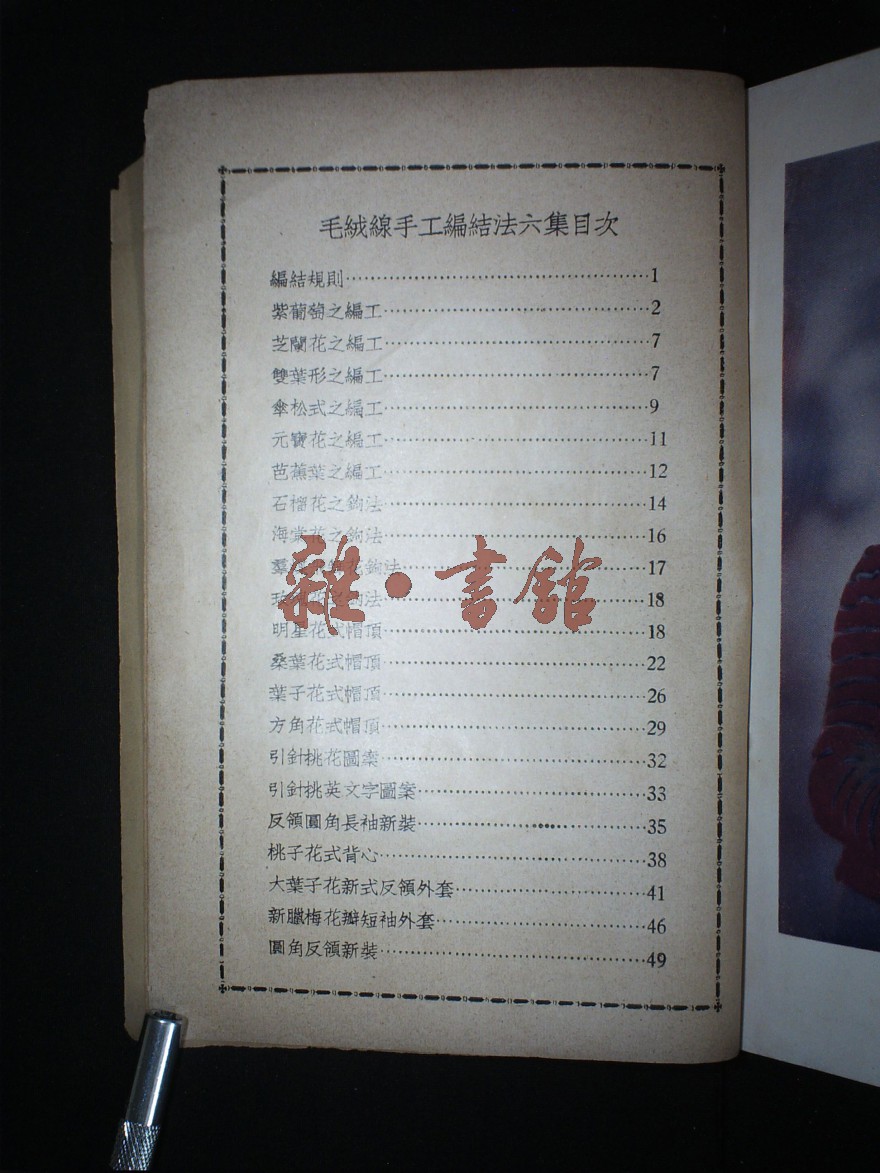 毛絨線手工編結法六集目次
編結規則 1
紫葡萄之編工 2
芝蘭花之編工 7
雙葉形之編工 7
傘松式之編工 9
元寶花之編工 11
芭蕉葉之編工 12
石榴花之鉤法 14
海棠花之鉤法 16
羣 花鉤法 17
法 18
明星花式帽頂 18
桑葉花式帽頂 22
葉子花式帽頂 26
方角花式帽頂 29
引針挑花圖案 32
引針挑英文字圖案 33
反領圓角長袖新裝 35
桃子花式背心 38
大葉子花新式反領外套 41
新臘梅花瓣短袖外套 46
圓角反領新裝 49
雜·書舘